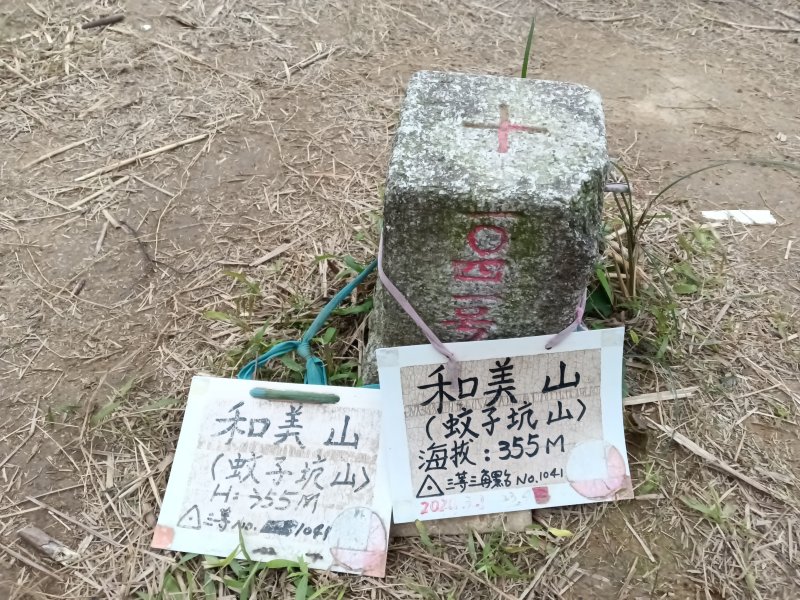 一〇四一号
和美山
(蚊子坑山)
H:355M
△三等NO.1041
和美山
(蚊子坑山)
海拔:355M
△三等三角點NO.1041